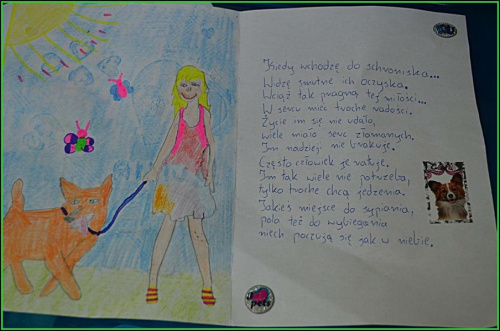 Kiedy wchodzę do schroniska...
Widzę smutne ich oczyska.
Wciąż tak pragną tej miłości...
W sercu mieć trochę radości.
Życie im się nie udało,
wiele miało serc złamanych.
Im nadzieji nie brakuje.
Często człowiek je ratuje.
Im tak wiele nie potrzeba,
tylko trochę chcą jedzenia.
Jakieś miejsce do sypiania,
pola też do wybiegania
niech poczują się jak w niebie.
pets